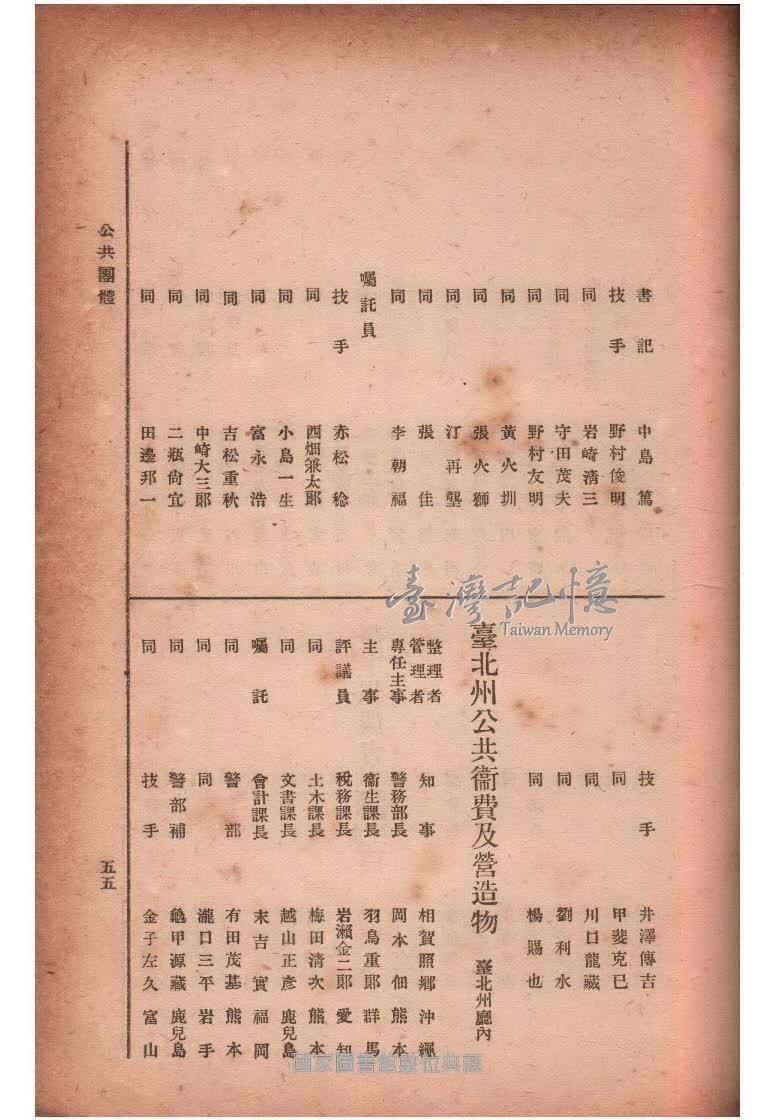 書記　中島篤
技手　野村俊明
同　岩崎清三
同　守田茂夫
同　野村友明
同　黃火圳
同　張火獅
同　汀再壟
同　張佳
同　李朝福
囑託員
技手　赤松稔
同　西畑兼太郞
同　小島一生
同　富永浩
同　吉松重秋
同　中崎大三郞
同　二瓶尙宜
同　田邊邦一
技手　井澤傳吉
同　甲斐克巳
同　川口龍藏
同　劉利水
同　楊賜也
臺北州公共衞費及營造物　臺北州廳內
整理者
管理者　知事　相賀照鄕　沖繩
專任主事　警務部長　岡本佃　熊本
主事　衞生課長　羽鳥重郞　群馬
評議員　稅務課長　岩瀨金二郞　愛知
同　土木課長　梅田淸次　熊本
同　文書課長　越山正彥　鹿兒島
囑託　會計課長　末吉實　福岡
同　警部　有田茂基　熊本
同　同　瀧口三平　岩手
同　警部補　龜甲源藏　鹿兒島
同　技手　金子左久　富山
公共團體
五五
臺灣記憶
Taiwan Memory
國家圖書館數位典藏